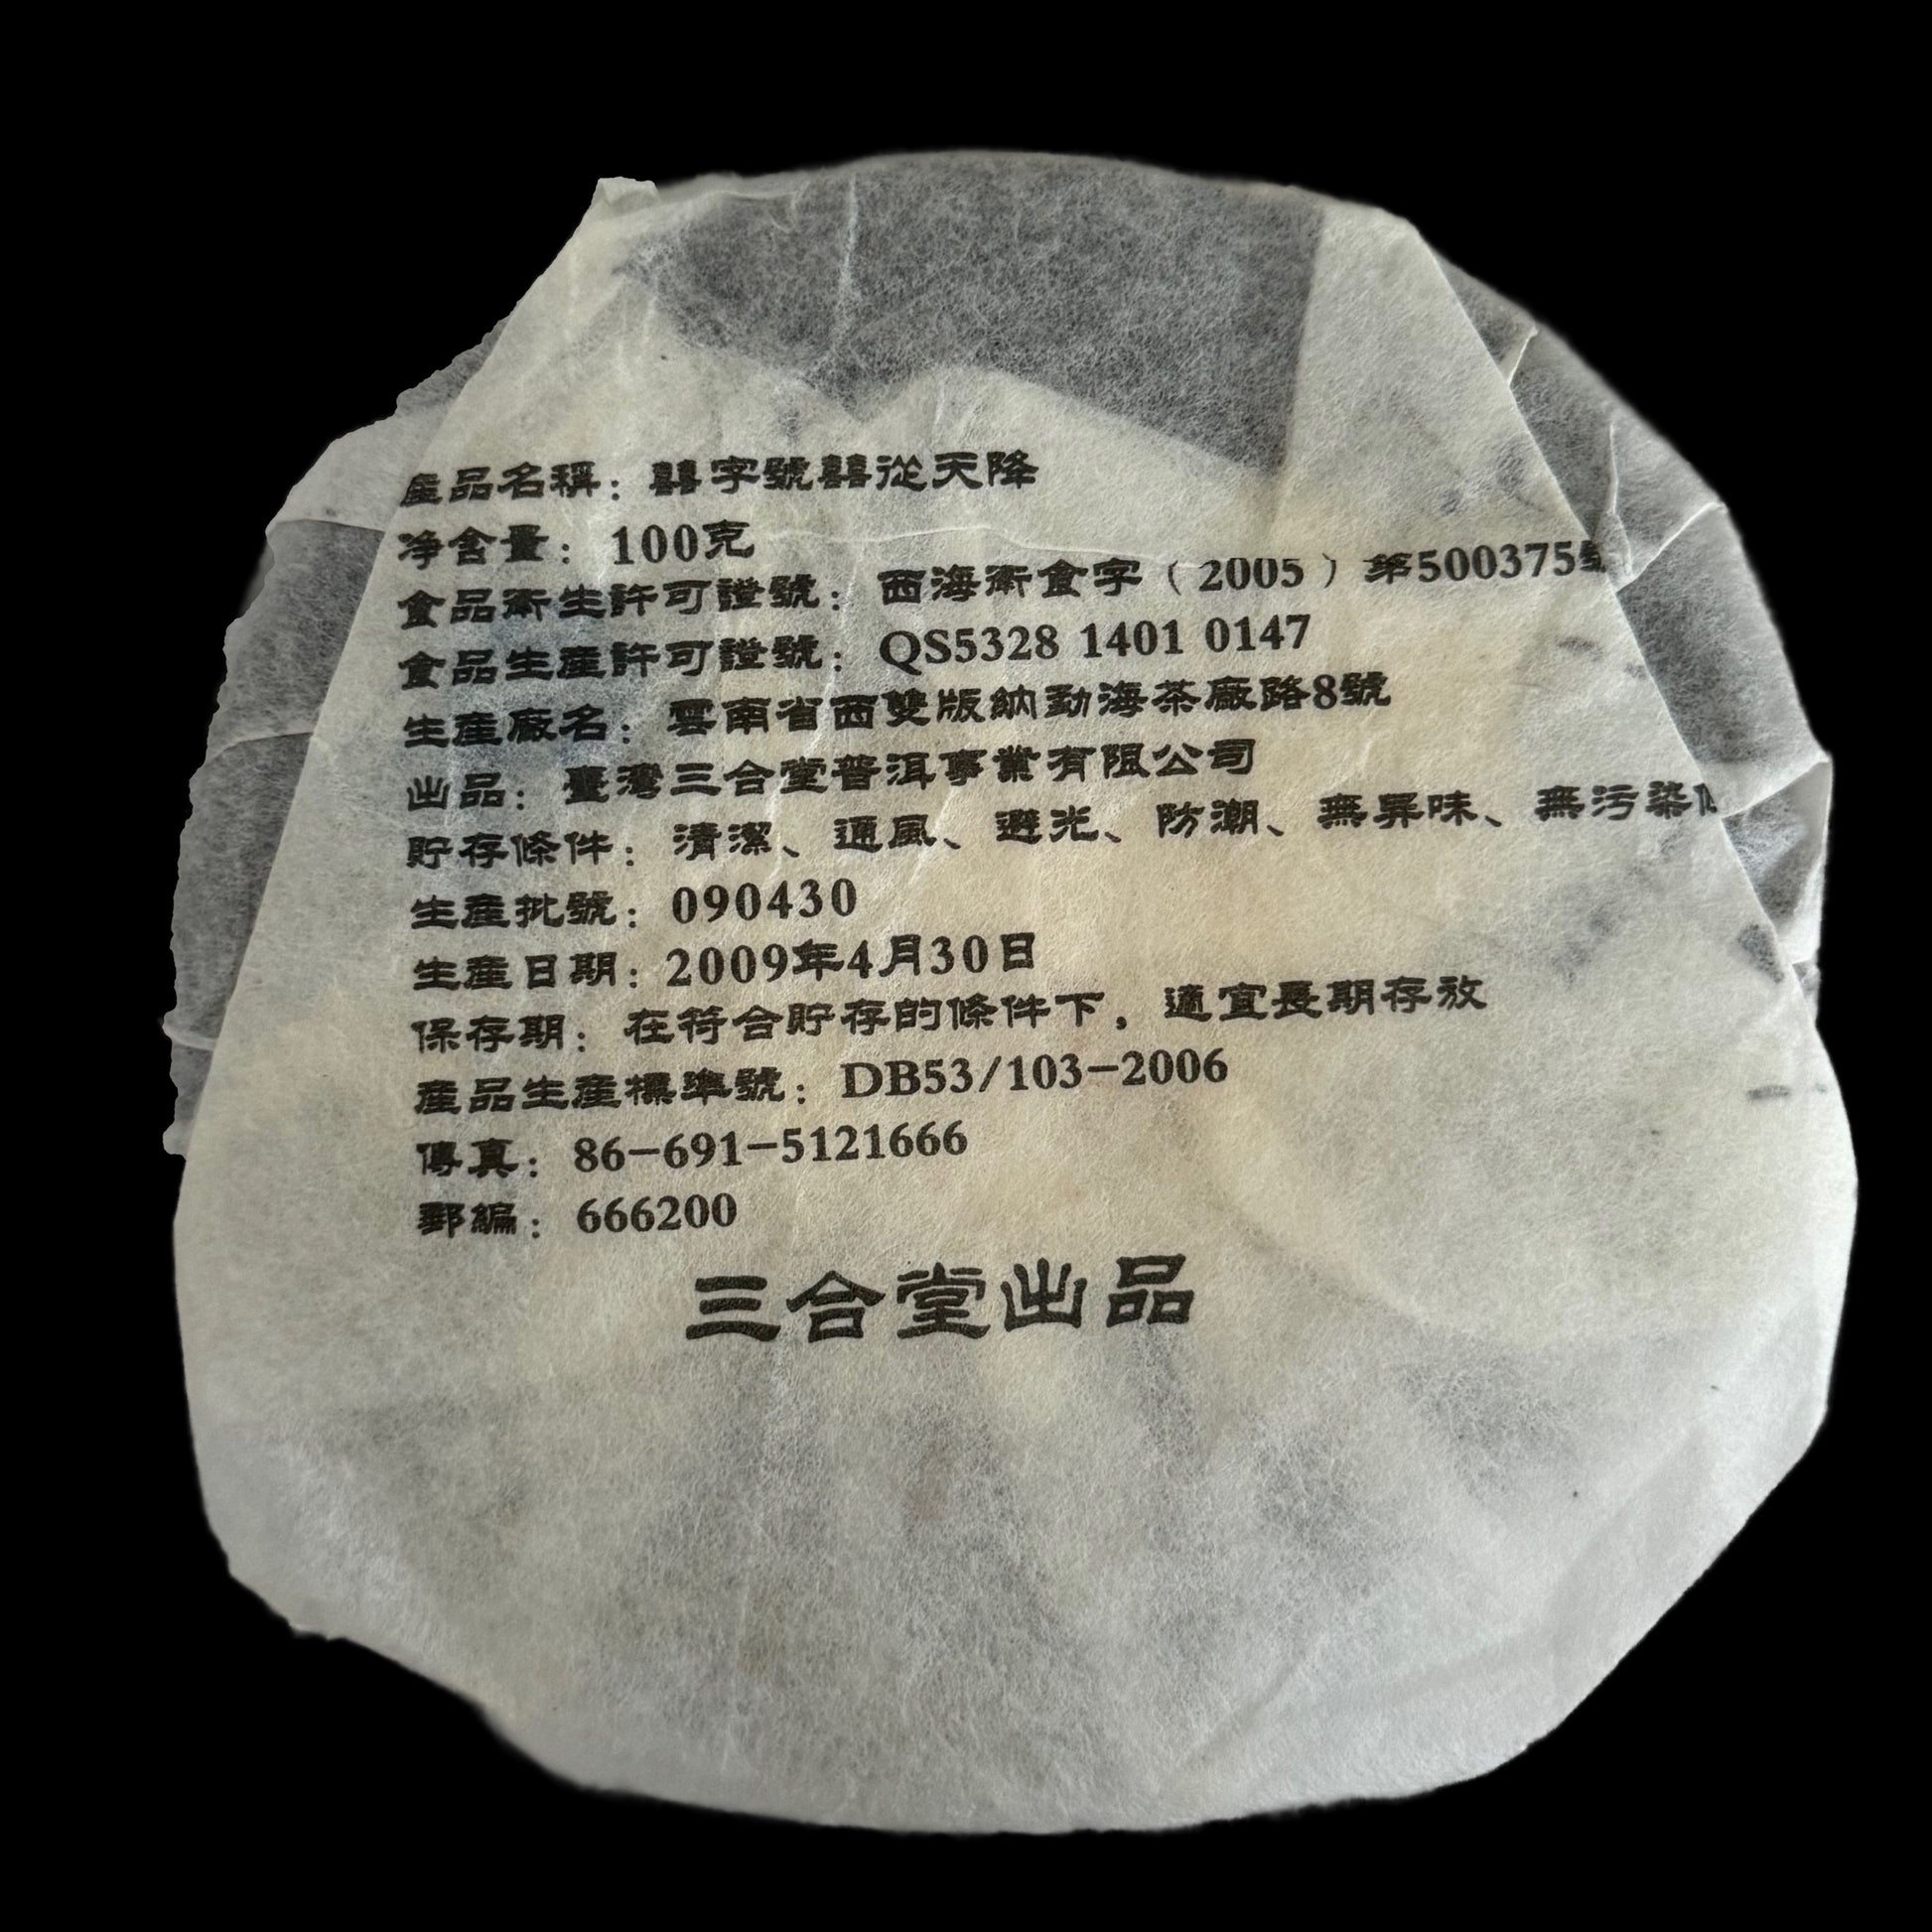 產品名稱：囍字號囍從天降
净含量：100克
食品衛生許可證號：西海衛食字（2005）第500375號
食品生產許可證號：QS5328 1401 0147
生產廠名：雲南省西雙版納勐海茶廠路8號
出品：臺灣三合堂普洱事業有限公司
貯存條件：清潔、通風、避光、防潮、無異味、無污染
生產批號：090430
生產日期：2009年4月30日
保存期：在符合貯存的條件下，適宜長期存放
產品生產標準號：DB53/103-2006
傳真：86-691-5121666
郵編：666200
三合堂出品